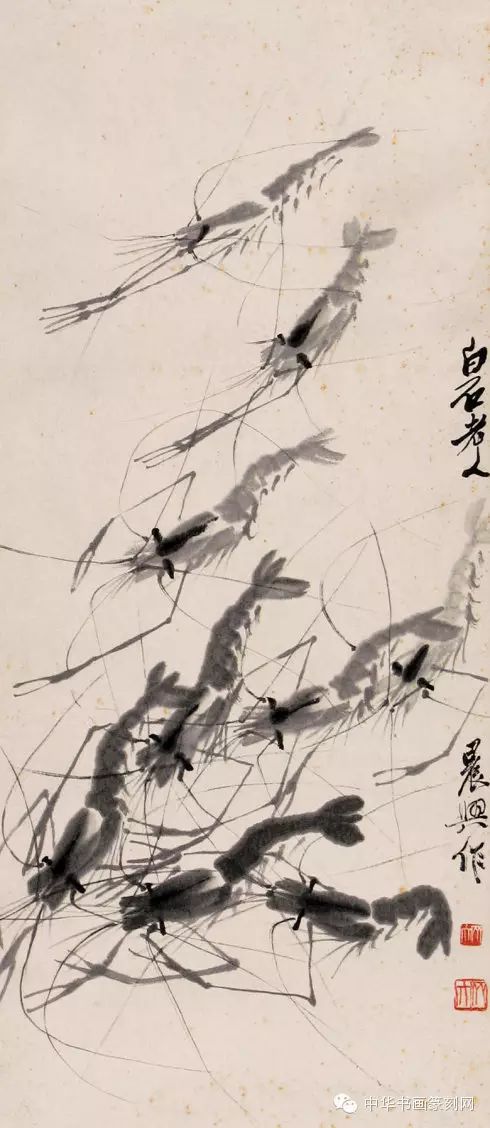 白石老人
晨興作
中华书画篆刻网